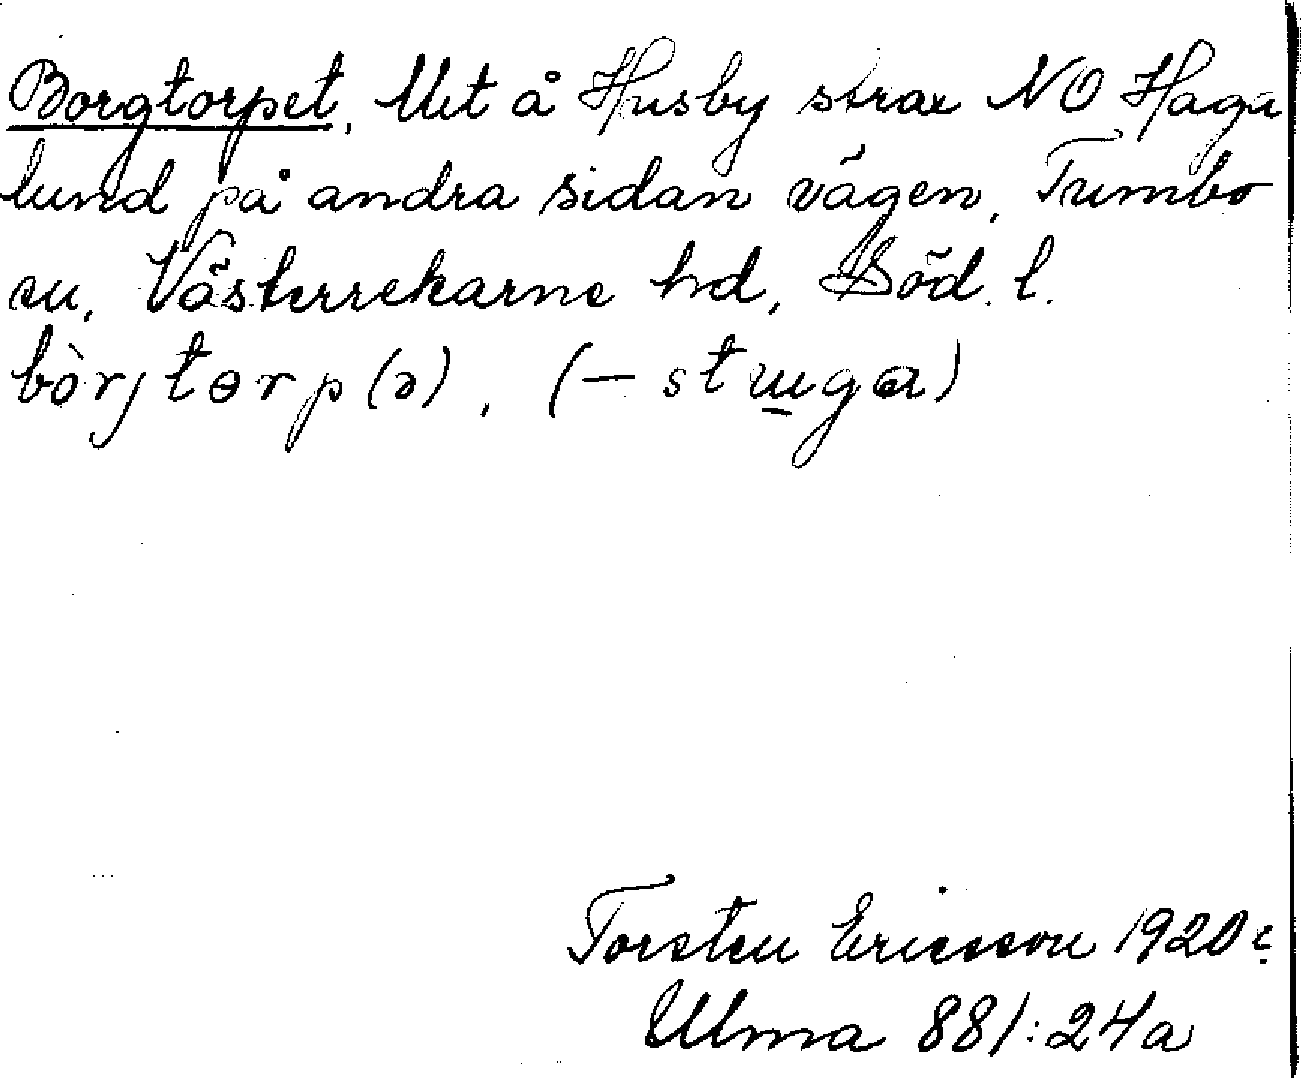 Borgtorpet. Utet å Husby strax NO Haga
lund på andra sidan vägen, Tumbo
sn, Västerrekarne hd, Söd. l.
bòrjtɵrp(ə), (– stɯga)
Torsten Ericsson 1920
Ulma 881:24a